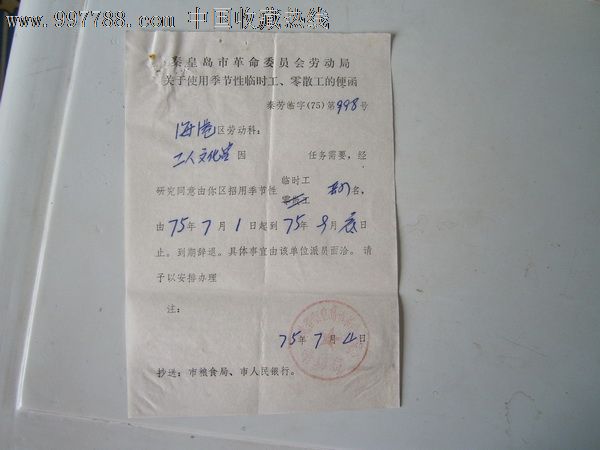 www.997788.com 中国收藏热线
秦皇岛市革命委员会劳动局
关于使用季节性临时工、零散工的便函
秦劳临字(75)第998号
海港区劳动科:
工人文化宫因 任务需要,经
研究同意由你区招用季节性 临时工 名,
零散工
由75年7月1日起到75年9月底日
止。到期辞退。具体事宜由该单位派员面洽。请
予以安排办理
注:
75年7月4日
抄送:市粮食局、市人民银行。